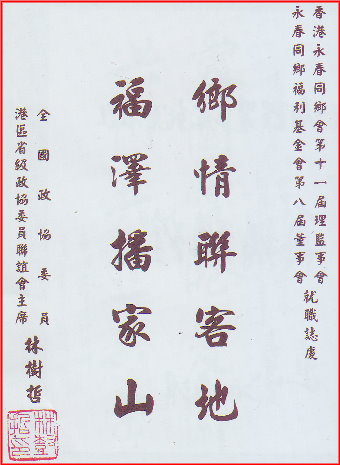 香港永春同鄉會第十一屆理監事會
永春同鄉福利基金會第八屆董事會
就職誌慶
鄉情聯客地
福澤播家山
全國政協委員
港區省級政協委員聯誼會主席
林樹哲